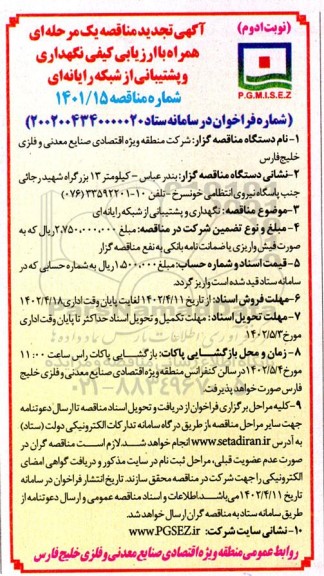 (نوبت دوم)
آگهی تجدید مناقصه یک مرحله ای
همراه با ارزیابی کیفی نگهداری
و پشتیبانی از شبکه رایانه ای
شماره مناقصه ۱۴۰۱/۱۵
P.G.M.I.S.E.Z
(شماره فراخوان در سامانه ستاد ۲۰۰۲۰۰۴۳۴۰۰۰۰۰۲۰)
۱-نام دستگاه مناقصه گزار: شرکت منطقه ویژه اقتصادی صنایع معدنی و فلزی
خلیج فارس
۲-نشانی دستگاه مناقصه گزار: بندرعباس - کیلومتر ۱۳ بزرگراه شهید رجائی
جنب پاسگاه نیروی انتظامی خونسرخ - تلفن ۱۰-۳۳۵۹۲۲۰۱ (۰۷۶)
۳-موضوع مناقصه: نگهداری و پشتیبانی از شبکه رایانه ای
۴-مبلغ و نوع تضمین شرکت در مناقصه: مبلغ ۲،۷۵۰،۰۰۰،۰۰۰ ریال که به
صورت فیش واریزی یا ضمانت نامه بانکی به نفع مناقصه گزار
۵- قیمت اسناد و شماره حساب: مبلغ ۱،۵۰۰،۰۰۰ ریال به شماره حسابی که در
سامانه ستاد قید شده است واریز گردد.
۶-مهلت فروش اسناد: از تاریخ ۱۴۰۲/۴/۱۱ لغایت پایان وقت اداری ۱۴۰۲/۴/۱۸
۷- مهلت تحویل اسناد: مهلت تکمیل و تحویل اسناد حداکثر تا پایان وقت اداری
مورخ ۱۴۰۲/۵/۳
۸- زمان و محل بازگشایی پاکات: بازگشایی پاکات راس ساعت ۱۱:۰۰
مورخ ۱۴۰۲/۵/۴ در سالن کنفرانس منطقه ویژه اقتصادی صنایع معدنی و فلزی خلیج
فارس صورت خواهد پذیرفت.
۹-کلیه مراحل برگزاری فراخوان از دریافت و تحویل اسناد مناقصه تا ارسال دعوتنامه
جهت سایر مراحل مناقصه، از طریق درگاه سامانه تدارکات الکترونیکی دولت (ستاد)
به آدرس www.setadiran.ir انجام خواهد شد. لازم است مناقصه گران در
صورت عدم عضویت قبلی، مراحل ثبت نام در سایت مذکور و دریافت گواهی امضای
الکترونیکی را جهت شرکت در مناقصه محقق سازند. تاریخ انتشار فراخوان در سامانه
تاریخ ۱۴۰۲/۴/۱۱ می باشد. اطلاعات و اسناد مناقصه عمومی و ارسال دعوتنامه از
طریق سامانه ستاد به مناقصه گران ارسال خواهد شد.
۱۰- نشانی سایت شرکت: www.PGSEZ.ir
روابط عمومی منطقه ویژه اقتصادی صنایع معدنی و فلزی خلیج فارس